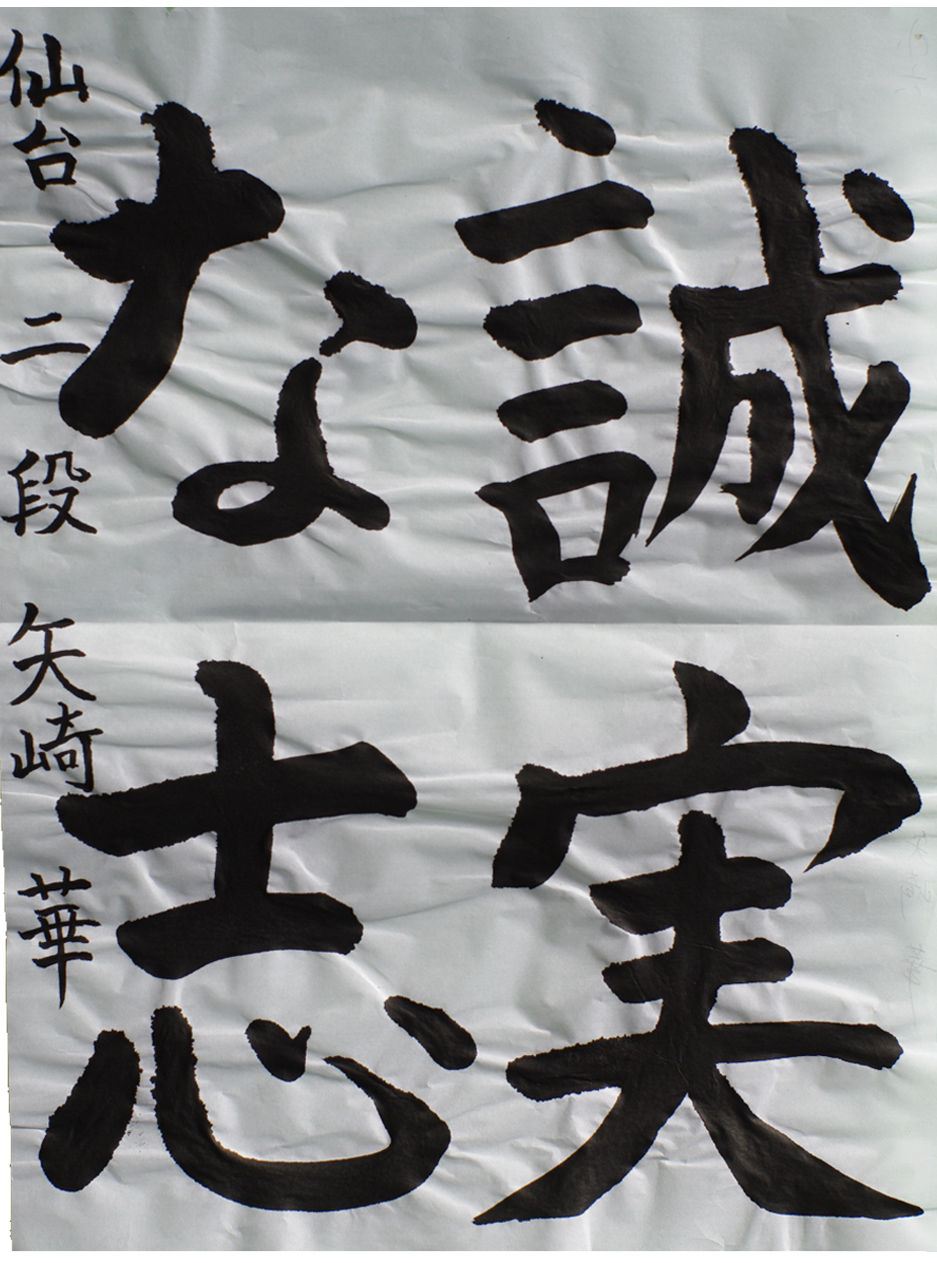 誠実
な志
仙台 二段 矢崎 華